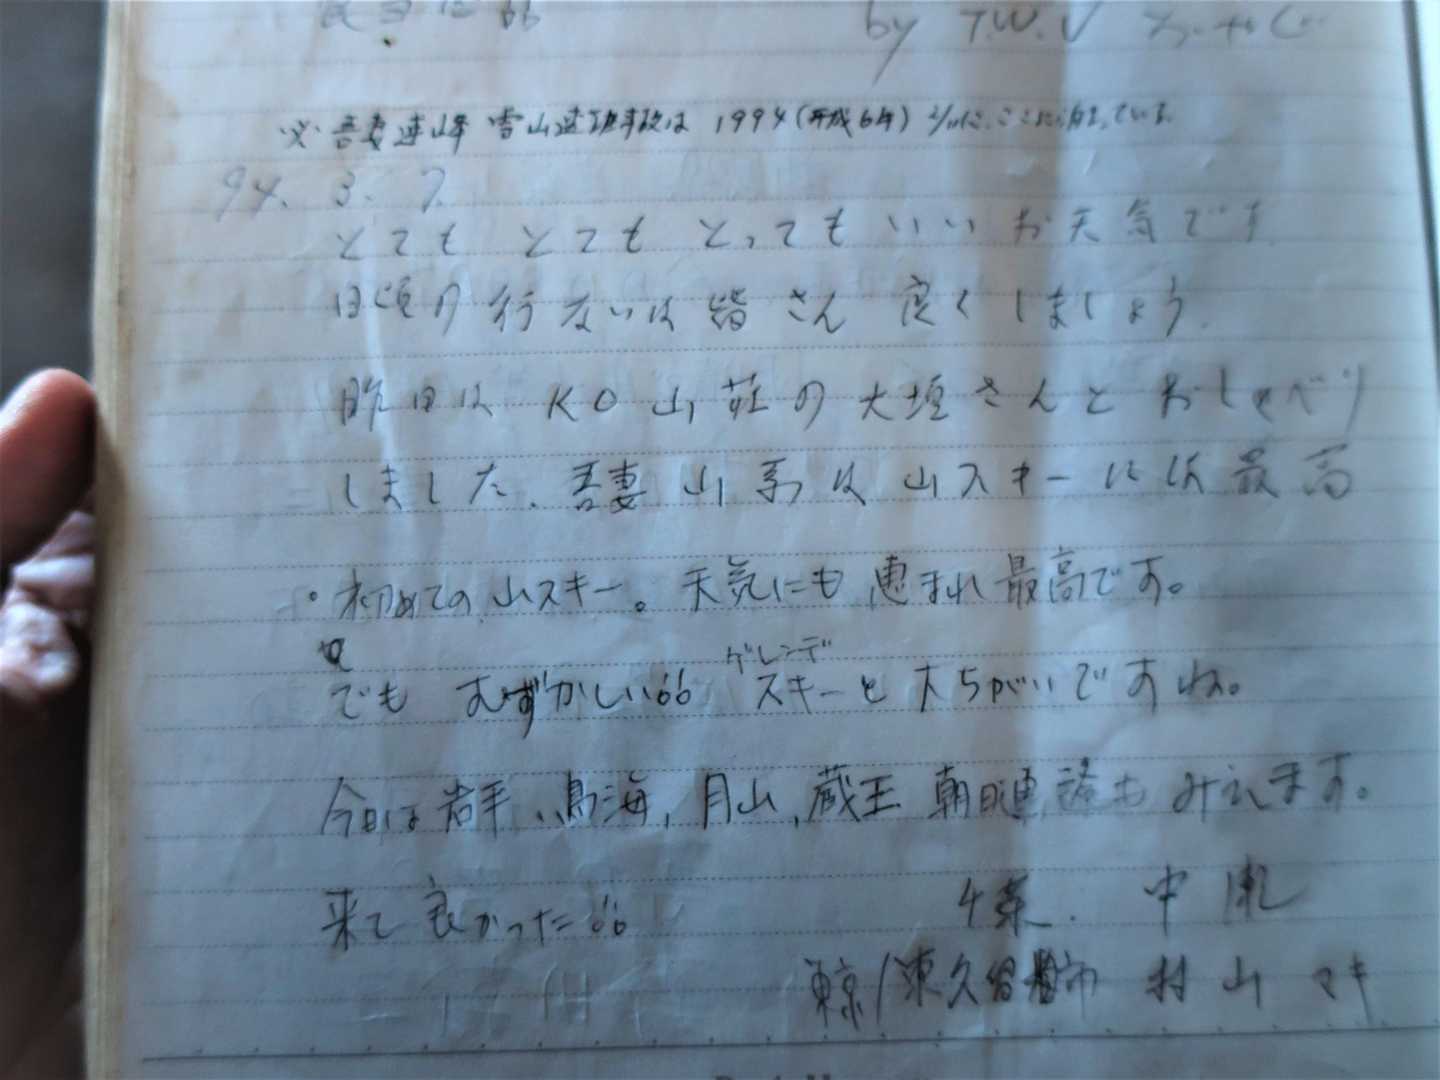 by T.W.V おやじ
※ 吾妻連峰 雪山遭難事故は 1994(平成6年) 2/11に、ここに泊まっている。
94. 3. 7
とても とても とっても いい お天気です.
日頃の 行ないは 皆さん 良く しましょう.
昨日は KO山荘の 大垣さんと おしゃべり
しました. 吾妻山系は 山スキーには 最高
・初めての 山スキー。 天気にも 恵まれ 最高です。
でも むずかしい!! ゲレンデスキーと 大ちがいですね。
今日は 岩手、鳥海, 月山, 蔵王 朝日連峰も みえます。
来て 良かった!!
中
東京/東久留米市 村山 マキ